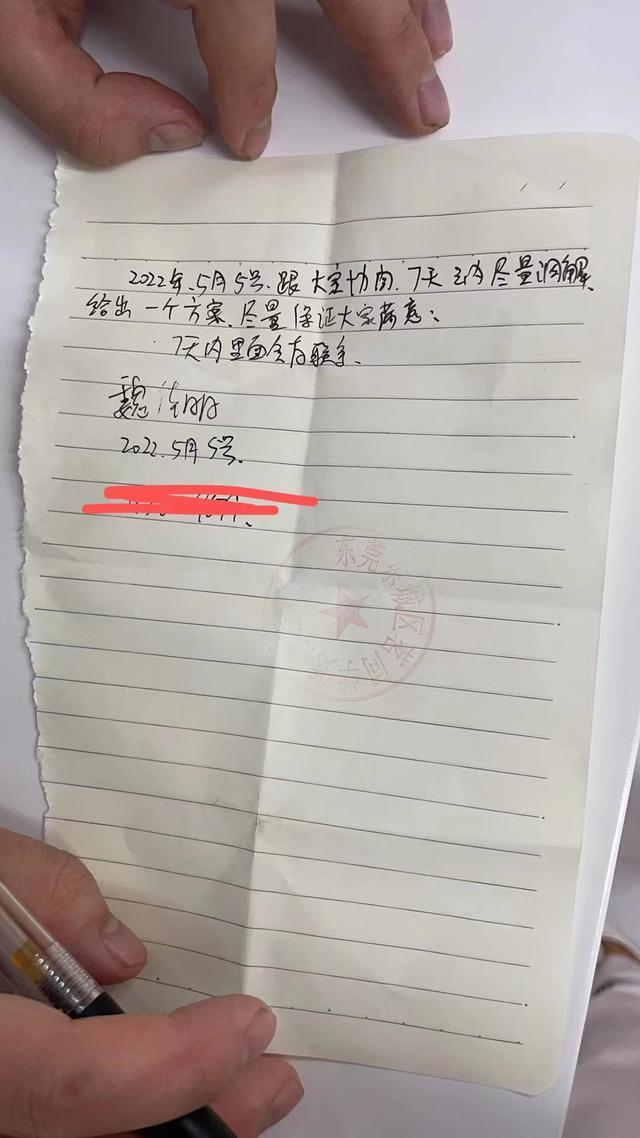 2022年、5月5号、跟大家协商、7天之内尽量调解、
给出一个方案、尽量保证大家满意；
7天内里面会有联系、
魏 明
2022.5月5号、
东莞东城区 同学